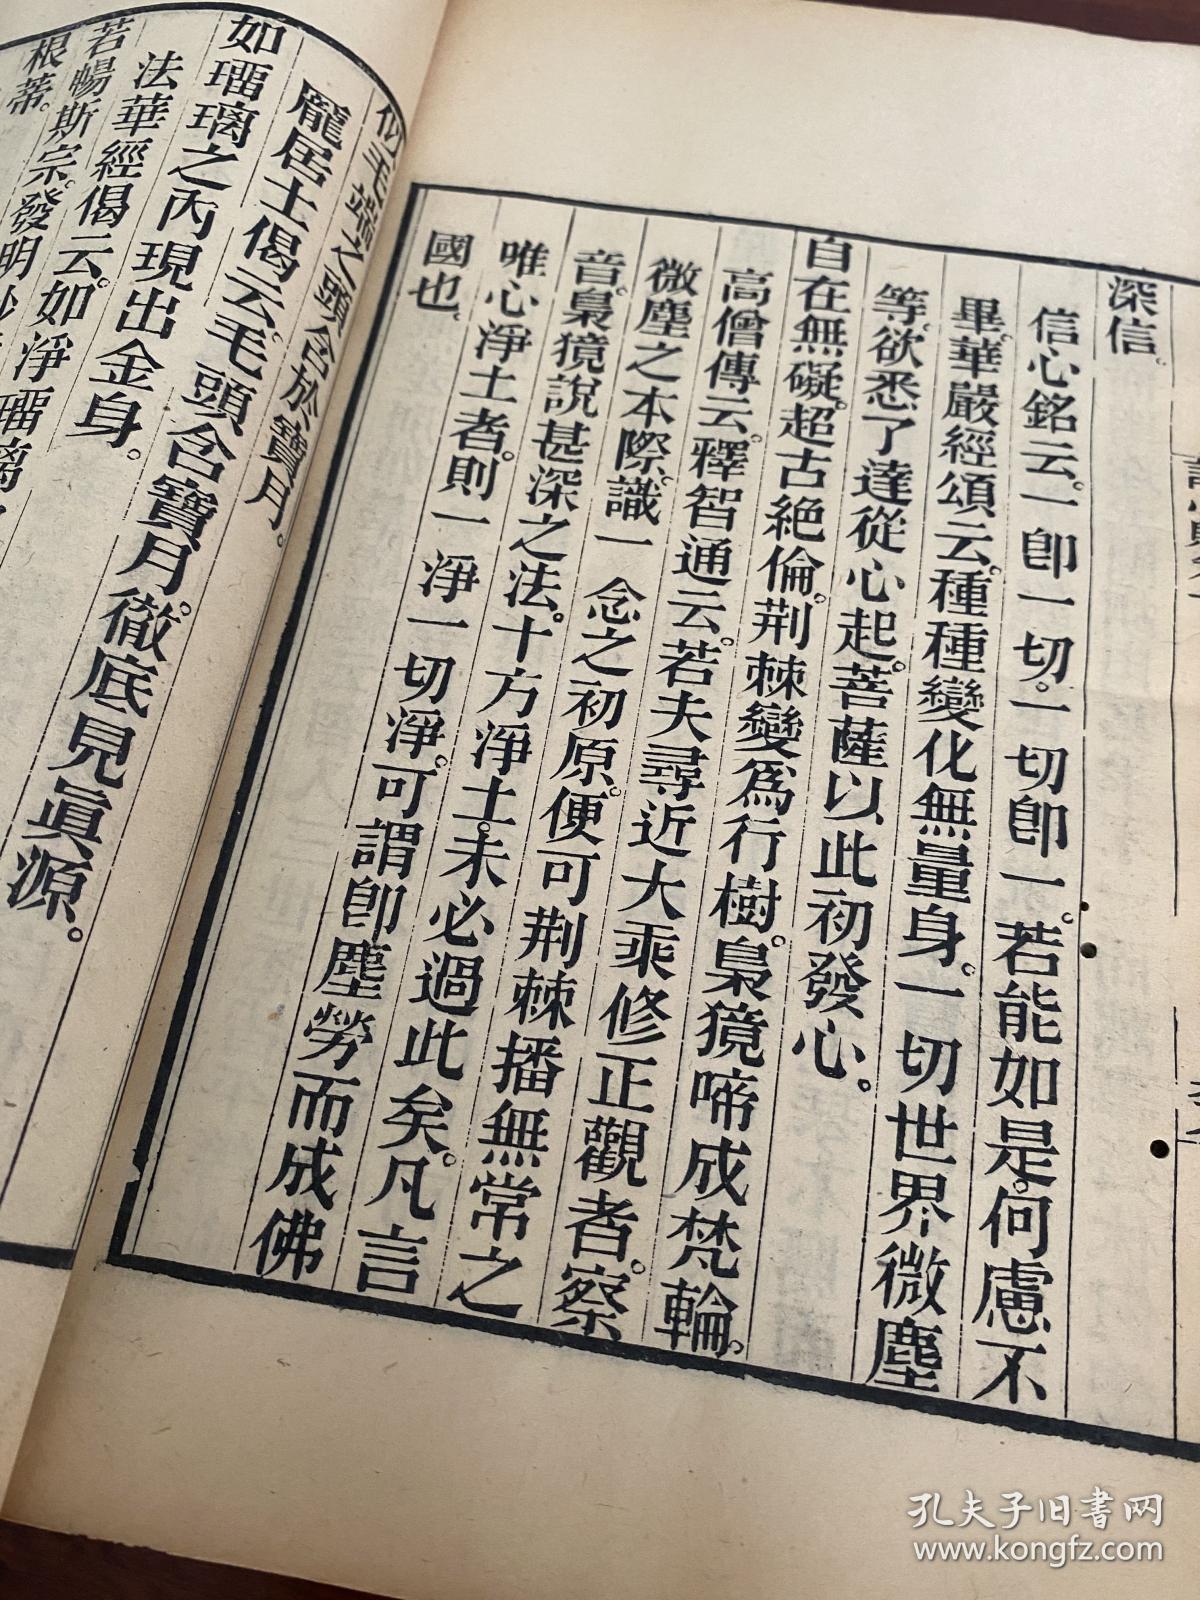 深信。
信心銘云。一即一切。一切即一。若能如是。何慮不
畢。華嚴經頌云。種種變化無量身。一切世界微塵
等。欲悉了達從心起。菩薩以此初發心。
自在無礙。超古絶倫。荆棘變爲行樹。梟獍啼成梵輪。
高僧傳云。釋智通云。若夫尋近大乘修正觀者。察
微塵之本際。識一念之初原。便可荆棘播無常之
音。梟獍說甚深之法。十方淨土。未必過此矣。凡言
唯心淨土者。則一淨一切淨。可謂即塵勞而成佛
國也。
毛端之頭含於寶月。
龐居士偈云。毛頭含寶月。徹底見眞源。
如瑠璃之內現出金身。
法華經偈云。如淨瑠璃
若暢斯宗。發明
根蒂。
孔夫子旧书网
www.kongfz.com